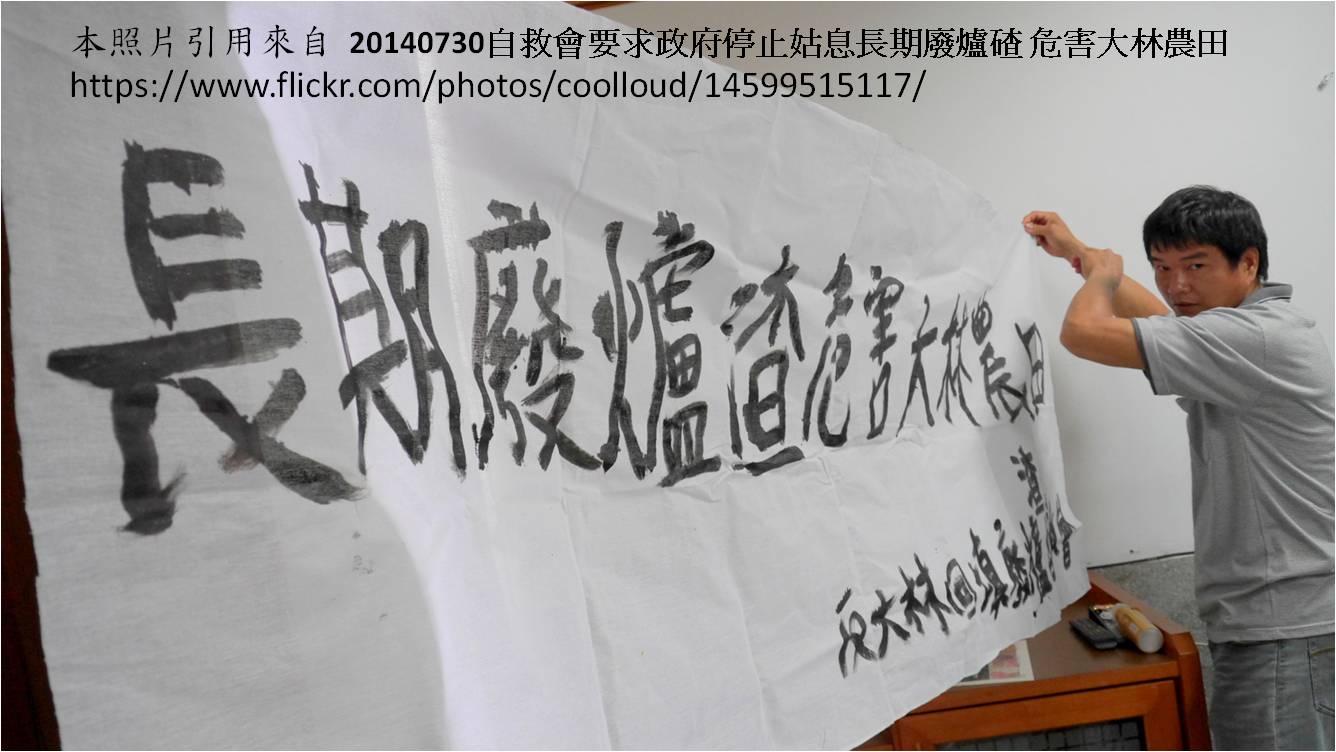 本照片引用來自 20140730自救會要求政府停止姑息長期廢爐碴 危害大林農田
https://www.flickr.com/photos/coolloud/14599515117/
長期廢爐渣危害大林農田
渣
反大林回填廢爐會